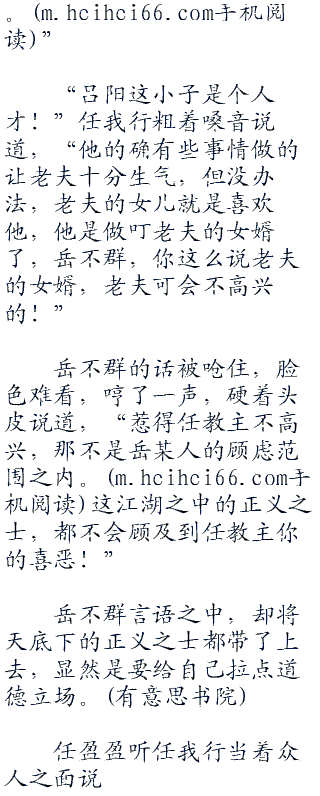 。(m.hcihci66.com手机阅
读)”
“吕阳这小子是个人
才！”任我行粗着嗓音说
道，“他的确有些事情做的
让老夫十分生气，但没办
法，老夫的女儿就是喜欢
他，他是做叮老夫的女婿
了，岳不群，你这么说老夫
的女婿，老夫可会不高兴
的！”
岳不群的话被呛住，脸
色难看，哼了一声，硬着头
皮说道，“惹得任教主不高
兴，那不是岳某人的顾虑范
围之内。(m.hcihci66.com手
机阅读)这江湖之中的正义之
士，都不会顾及到任教主你
的喜恶！”
岳不群言语之中，却将
天底下的正义之士都带了上
去，显然是要给自己拉点道
德立场。(有意思书院)
任盈盈听任我行当着众
人之面说